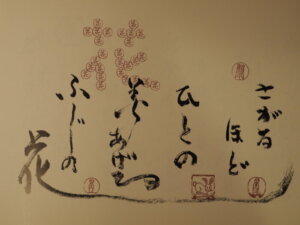 さがる
ほど
ひとの
見あげる
ふじの
花